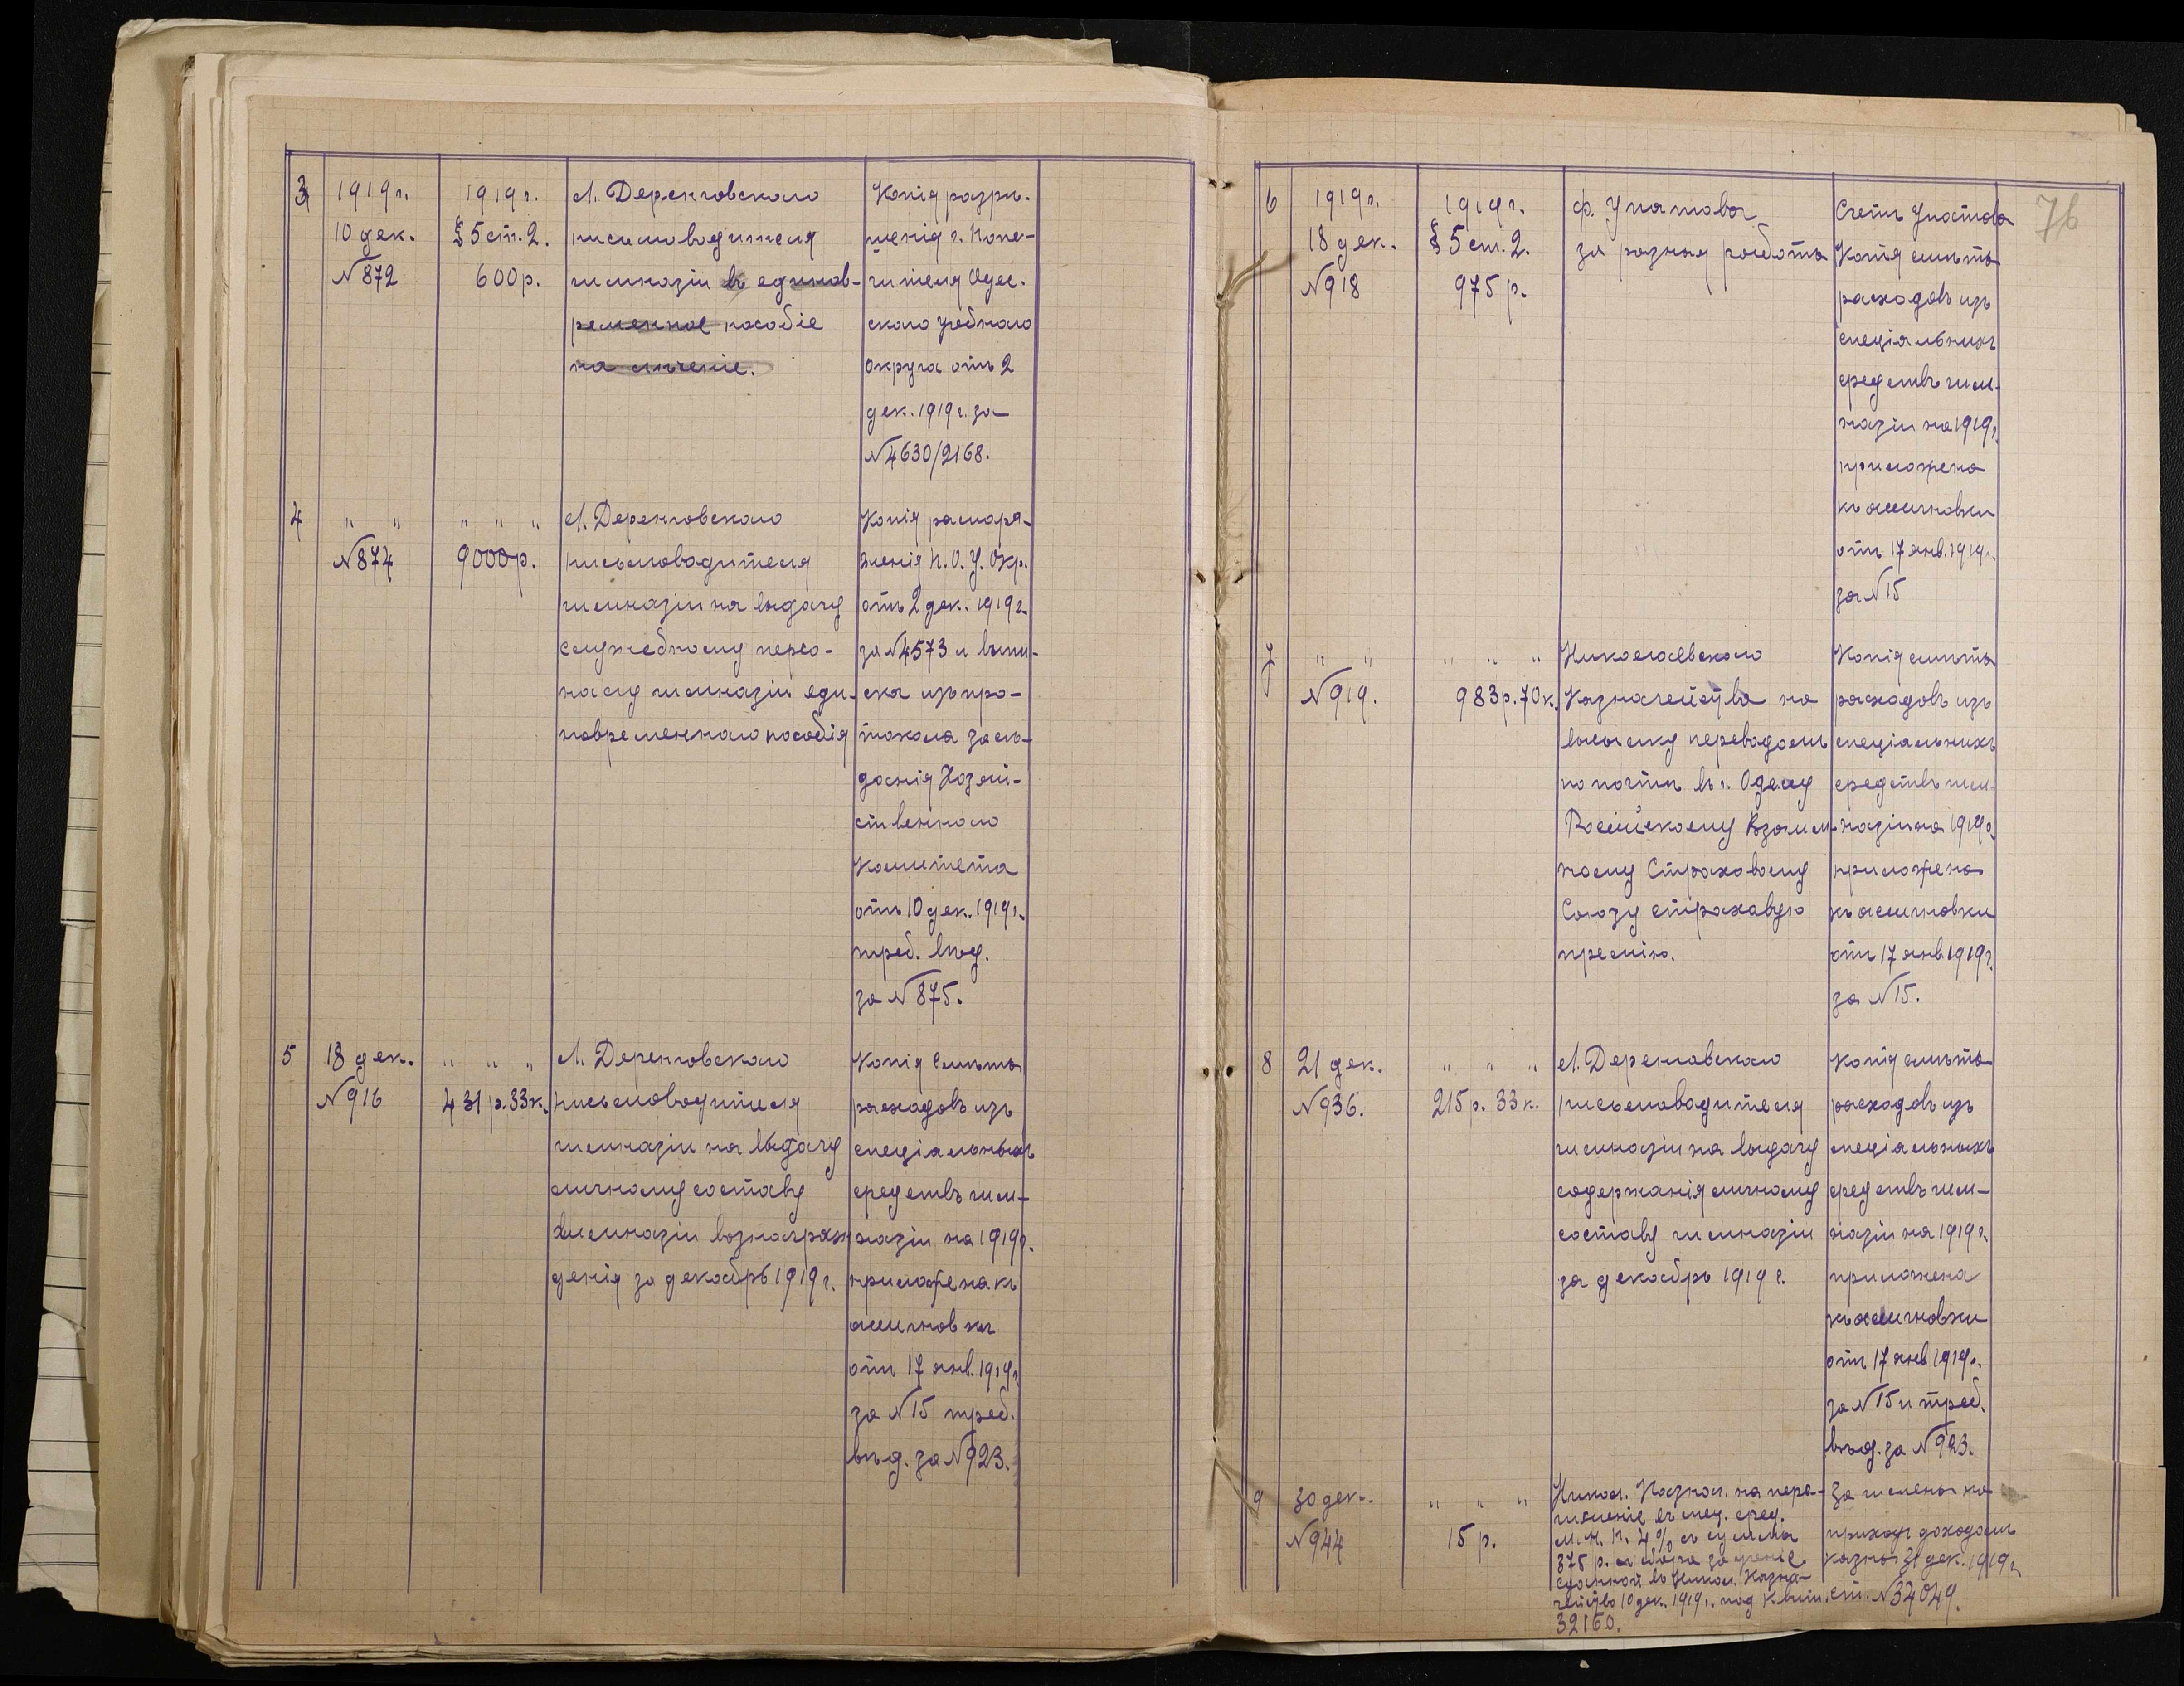 3
1919 г.
10 дек.
№872
1919 г.
§ 5 ст. 2.
600 р.
Л. Деренговскаго
письмоводителя
гимназіи въ единов-
ременное пособіе
на лѣченіе.
Копія разрѣ-
шенія г. Попе-
чителя Одес-
скаго учебнаго
Округа отъ 2
дек. 1919 г. за
№4630/2168.
4
" "
№874
" " "
9000 р.
Л. Деренговскаго
письмоводителя
гимназіи на выдачу
служебному персо-
налу гимназіи еди-
новременнаго пособія
Копія распоря-
женія П. О. У. Окр.
отъ 2 дек. 1919 г.
за №4573 и выпи-
ска изъ про-
токола засѣ-
данія Хозяй-
ственнаго
Комитета
отъ 10 дек. 1919 г.
треб. вѣд.
за №875.
5
18 дек.
№916
" " "
431 р. 33 к.
Л. Деренговскаго
письмоводителя
гимназіи на выдачу
личному составу
гимназіи вознаграж
денія за декабрь 1919 г.
Копія смѣты
расходовъ изъ
спеціальныхъ
средствъ гим-
назіи на 1919 г.
приложена къ
ассигновки
отъ 17 янв. 1919 г.
за №15 треб.
вѣд. за №923.
76
6
1919 г.
18 дек.
№918
1919 г.
§ 5 ст. 2.
975 р.
Ф.
за разныя работы
Счетъ
Копія смѣты
расходовъ изъ
спеціальныхъ
средствъ гим-
назіи на 1919 г.
приложена
къ ассигновки
отъ 17 янв. 1919 г.
за №15
7
" "
№919.
" " "
983 р. 70 к.
Николаевскаго
Казначейства на
высылку переводомъ
по почтѣ въ г. Одессу
Россійскому Взаим-
ному Страховому
Союзу страхавую
премію.
Копія смѣты
расходовъ изъ
спеціальныхъ
средствъ гим-
назіи на 1919 г.
приложена
къ ассигновки
отъ 17 янв. 1919 г.
за №15.
8
21 дек.
№936.
" " "
215 р. 33 к.
Л. Деренговскаго
письмоводителя
гимназіи на выдачу
содержанія личному
составу гимназіи
за декабрь 1919 г.
Копія смѣты
расходовъ изъ
спеціальныхъ
средствъ гим-
назіи на 1919 г.
приложена
къ ассигновки
отъ 17 янв 1919 г.
за №15 и треб.
вѣд. за №923.
9
30 дек.
№944
" " "
15 р.
Никол. Казнач. на пере-
численіе въ спец. сред.
М. Н. П. 4% съ суммы
375 р. сбора за ученіе
сданной въ Никол. Казна-
чейство 10 дек. 1919 г. под квит.
32160.
Зачислены на
приходъ доходомъ
казны 31 дек. 1919 г.
ст. №34049.